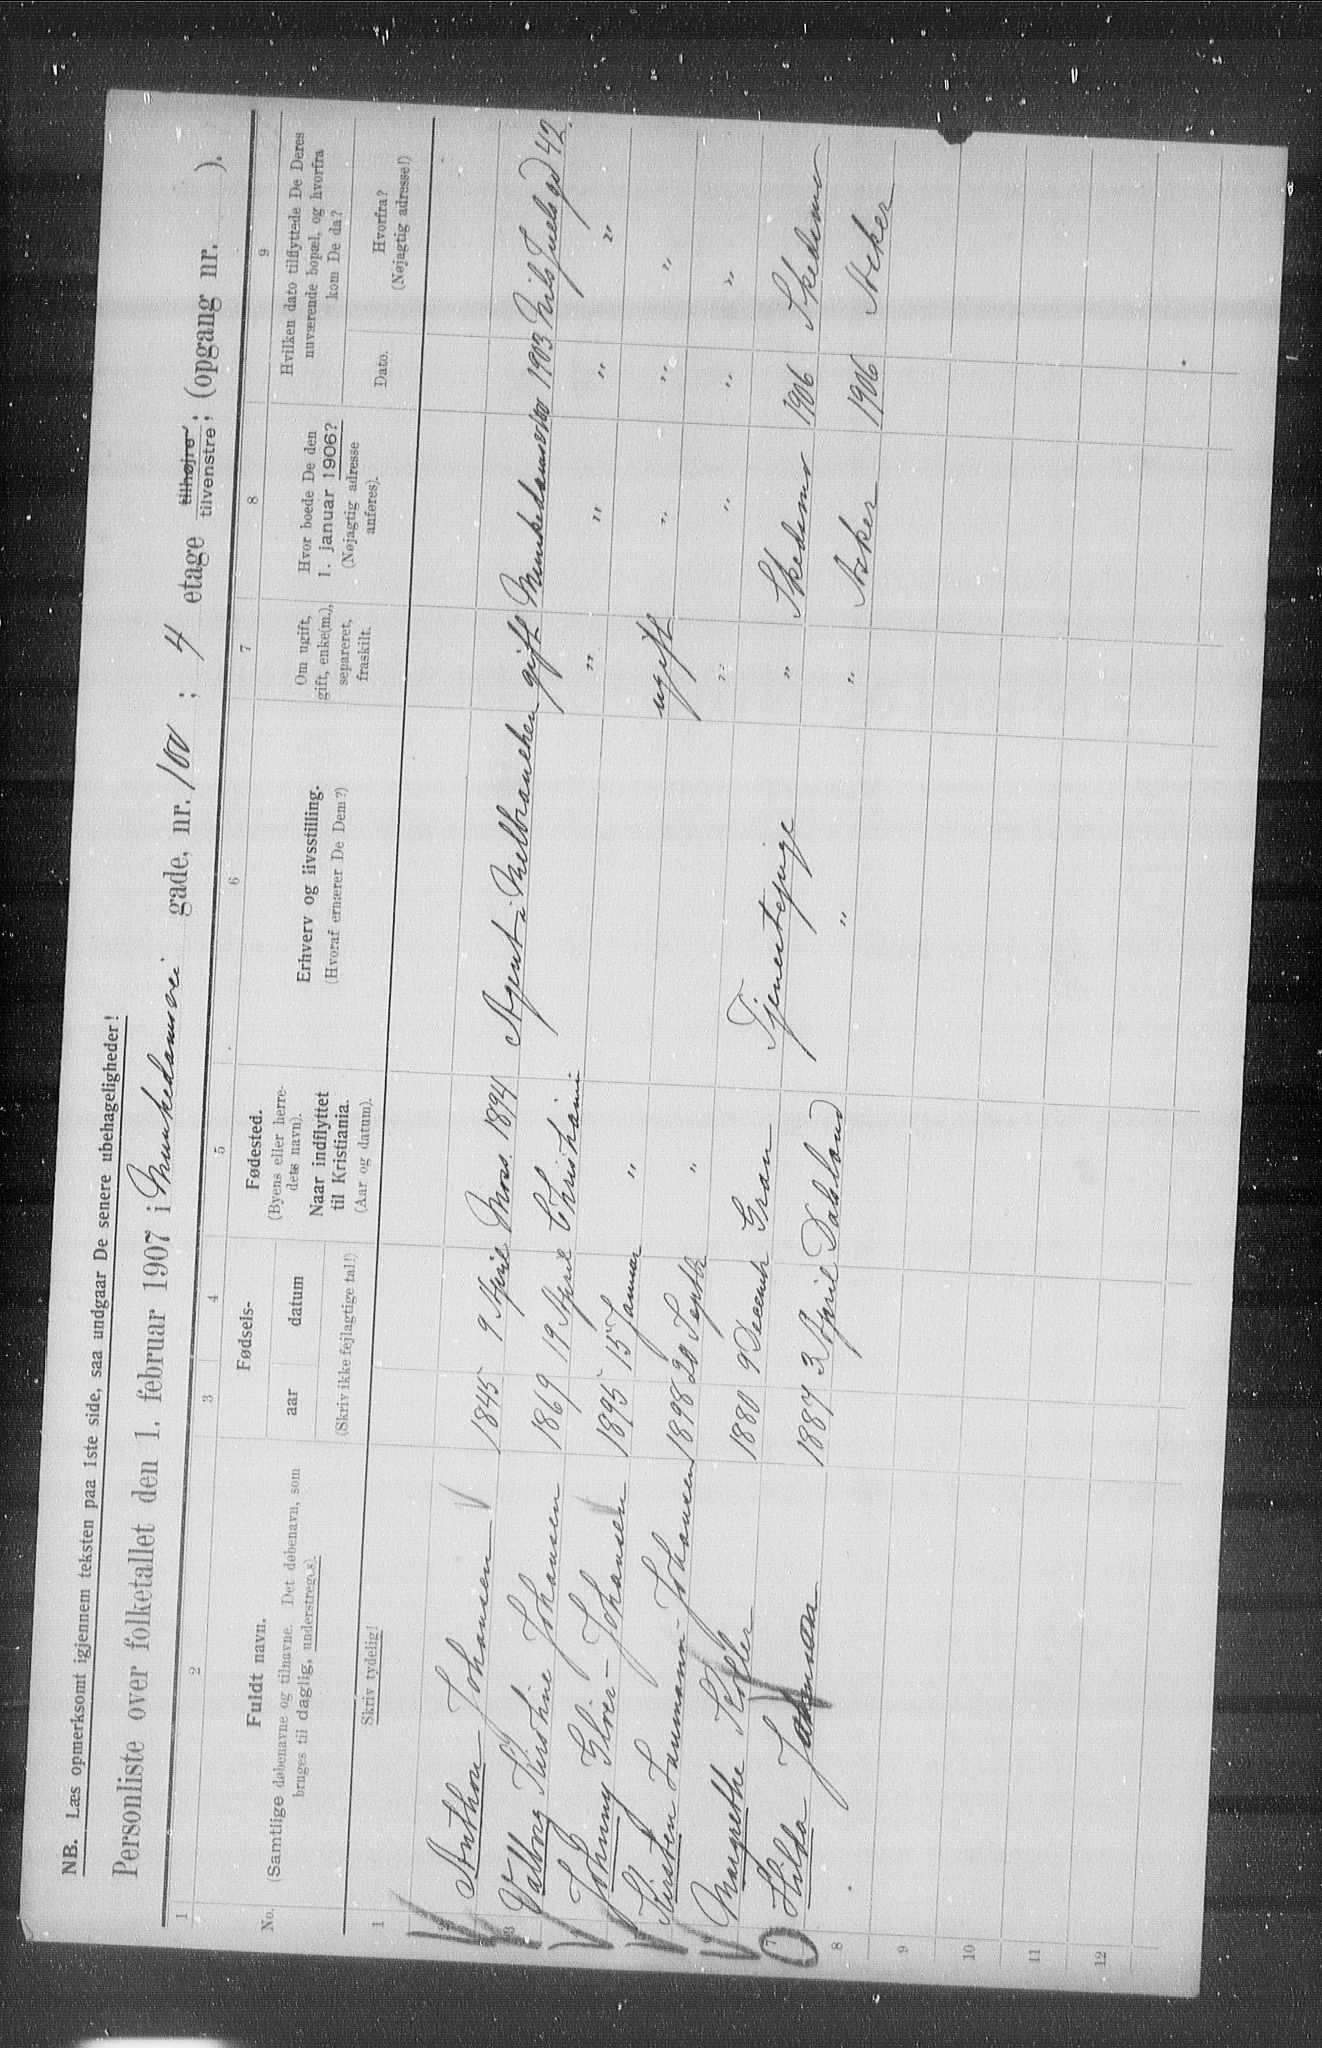 NB. Læs opmerksomt igjennem teksten paa 1ste side, saa undgaar De senere ubehageligheder!
Personliste over folketallet den 1. februar 1907 i Munkedamsvei gade, nr. 100; 4 etage tilhøjre tilvenstre; (opgang nr. ).
1 2 3 4 5 6 7 8 9
No.
Fuldt navn.
(Samtlige døbenavne og tilnavne. Det døbenavn, som
bruges til daglig, understreges).
Skriv tydelig!
Fødsels-
aar datum
(Skriv ikke fejlagtige tal!)
Fødested.
(Byens eller herre-
dets navn).
Naar indflyttet
til Kristiania.
(Aar og datum).
Erhverv og livsstilling.
(Hvoraf ernærer De Dem?)
Om ugift,
gift, enke(m.),
separeret,
fraskilt.
Hvor boede De den
1. januar 1906?
(Nøjagtig adresse
anføres).
Hvilken dato tilflyttede De Deres
nuværende bopæl, og hvorfra
kom De da?
Dato.
Hvorfra?
(Nøjagtig adresse!)
1
2 Anthon Johansen 1845 9 April Moss. 1894 Agent i Melbranchen gift Munkedamsv 100 1903 Nils Juels gd 42.
3 Valborg Kirstine Johansen 1869 19 April Christiania " " " "
Johnny Johansen 1895 15 Januar " ugift " " "
Kirsten Laumann Johansen 1898 20 Septb " " " " "
Margrethe 1880 9 Decemb Gran Tjenestepige " Skedsmo 1906 Skedsmo
7 Hilda 1887 3 April Dalsland " " Asker 1906 Asker
8
9
10
11
12